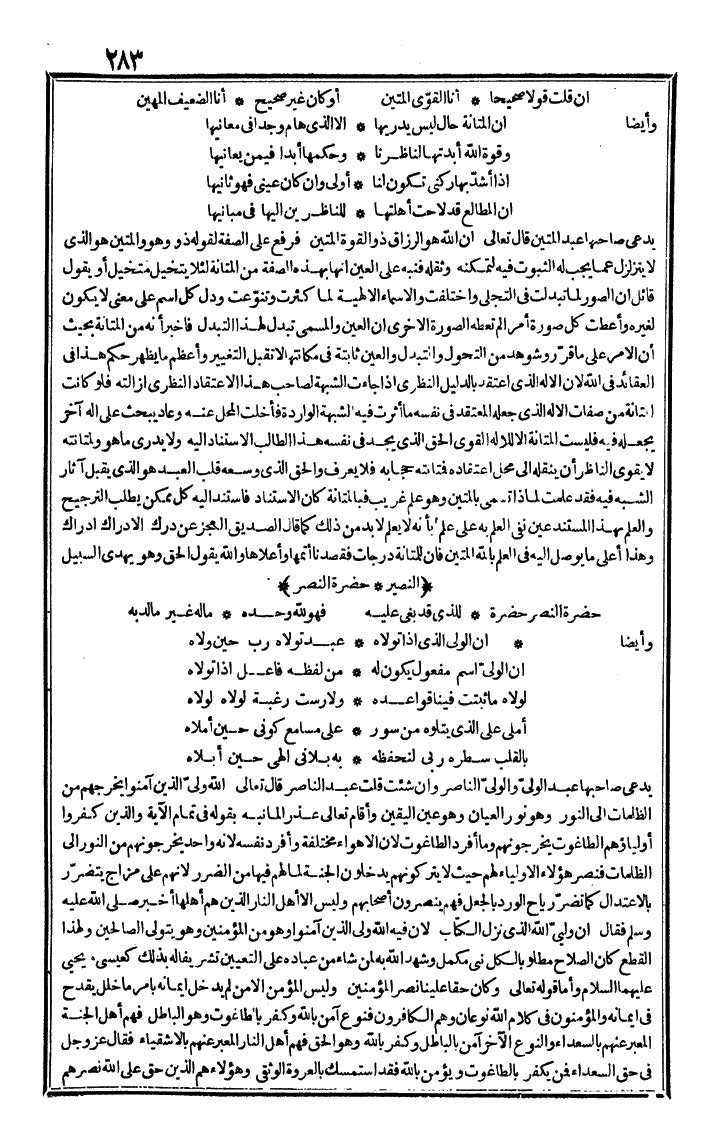 ٢٨٣
ان قلت قولا صحيحا * أنا القوىّ المتين أو كان غير صحيح * أنا الضعيف المهين
وأيضا ان المتانة حال ليس يدريها * الا الذى هام وجدا فى معانيها
وقوة الله أبدتها لناظرنا * وحكمها أبدا فيمن يعانيها
اذا أشدّ بها ركنى تكون لنا * أولى وان كان عينى فهو ثانيها
ان المطالع قد لاحت أهلتها * للناظرين اليها فى مبانيها
يدعى صاحبها عبد المتين قال تعالى ان الله هو الرزاق ذو القوة المتين فرفع على الصفة لقوله ذو وهو والمتين هو الذى
لا يتزلزل عما يجب له الثبوت فيه لتمكنه وثقله فنبه على العين انها بهذه الصفة من المتانة لئلا يتخيل متخيل أو يقول
قائل ان الصور لما تبدلت فى التجلى واختلفت والاسماء الالهية لما كثرت وتنوّعت ودل كل اسم على معنى لا يكون
لغيره وأعطت كل صورة أمر الم تعطه الصورة الاخرى ان العين والمسمى تبدل لهذا التبدل فاخبر أنه من المتانة بحيث
أن الامر على ما قرّر وشوهد من التحول والتبدل والعين ثابتة فى مكانتها لا تقبل التغيير وأعظم ما يظهر حكم هذا فى
العقائد فى الله لان الاله الذى اعتقد بالدليل النظرى اذا جاءت الشبهة لصاحب هذا الاعتقاد النظرى ازالته فلو كانت
المتانة من صفات الاله الذى جعله المعتقد فى نفسه ما أثرت فيه الشبهة الواردة فأخلت المحل عنه وعاد يبحث على اله آخر
يجعله فيه فليست المتانة الا للاله القوى الحق الذى يجد فى نفسه هذا الطالب الاستناد اليه ولا يدرى ما هو ولمتانته
لا يقوى الناظر أن ينقله الى محل اعتقاده فمتانته حجابه فلا يعرف والحق الذى وسعه قلب العبد هو الذى يقبل آثار
الشبه فيه فقد علمت لماذا تسمى بالمتين وهو علم غريب فبالمتانة كان الاستناد فاستند اليه كل ممكن يطلب الترجيح
والعلم بهذا المستند عين نفى العلم به على علم بأنه لا يعلم لا بد من ذلك كما قال الصديق العجز عن درك الادراك ادراك
وهذا أعلى ما يوصل اليه فى العلم بالله المتين فان للمتانة درجات فقصدنا أتمها وأعلاها والله يقول الحق وهو يهدى السبيل
﴿النصير * حضرة النصر﴾
حضرة النصر حضرة * للذى قد بغى عليه فهو لله وحده * ماله غير ما لديه
وأيضا * ان الولى الذى اذا تولاه * عبد تولاه رب حين ولاه
ان الولىّ اسم مفعول يكون له * من لفظه فاعل اذا تولاه
لولاه ما ثبتت فينا قواعده * ولا رست رغبة لولاه لولاه
أملى على الذى يتلوه من سور * على مسامع كونى حين أملاه
بالقلب سطره ربى لنحفظه * به بلانى الهى حين أبلاه
يدعى صاحبها عبد الولىّ والولىّ الناصر وان شئت قلت عبد الناصر قال تعالى الله ولىّ الذين آمنوا يخرجهم من
الظلمات الى النور وهو نور العيان وهو عين اليقين وأقام تعالى عذر المانيه بقوله فى تمام الآية والذين كفروا
أولياؤهم الطاغوت يخرجونهم وما أفرد الطاغوت لان الاهواء مختلفة وأفرد نفسه لانه واحد يخرجونهم من النور الى
الظلمات فنصر هؤلاء الاولياء لهم حيث لا يتركونهم يدخلون الجنة لما لهم فيها من الضرر لانهم على مزاج يتضرّر
بالاعتدال كما تضرّ رياح الورد بالجعل فهم ينصرون أصحابهم وليس الا أهل النار الذين هم أهلها أخبر صلى الله عليه
وسلم فقال ان وليىّ الله الذى نزل الكتاب لان فيه الله ولى الذين آمنوا وهو من المؤمنين وهو يتولى الصالحين ولهذا
القطع كان الصلاح مطلوبا لكل نبى مكمل وشهد الله به لمن شاء من عباده على التعيين تشريفا له بذلك كعيسى ويحيى
عليهما السلام وأما قوله تعالى وكان حقا علينا نصر المؤمنين وليس المؤمن الا من لم يدخل ايمانه بامر ما خلل يقدح
فى ايمانه والمؤمنون فى كلام الله نوعان وهم الكافرون فنوع آمن بالله وكفر بالطاغوت وهو الباطل فهم أهل الجنة
المعبر عنهم بالسعداء والنوع الآخر آمن بالباطل وكفر بالله وهو الحق فهم أهل النار المعبر عنهم بالاشقياء فقال عز وجل
فى حق السعداء فمن يكفر بالطاغوت ويؤمن بالله فقد استمسك بالعروة الوثقى وهؤلاء هم الذين حق على الله نصرهم